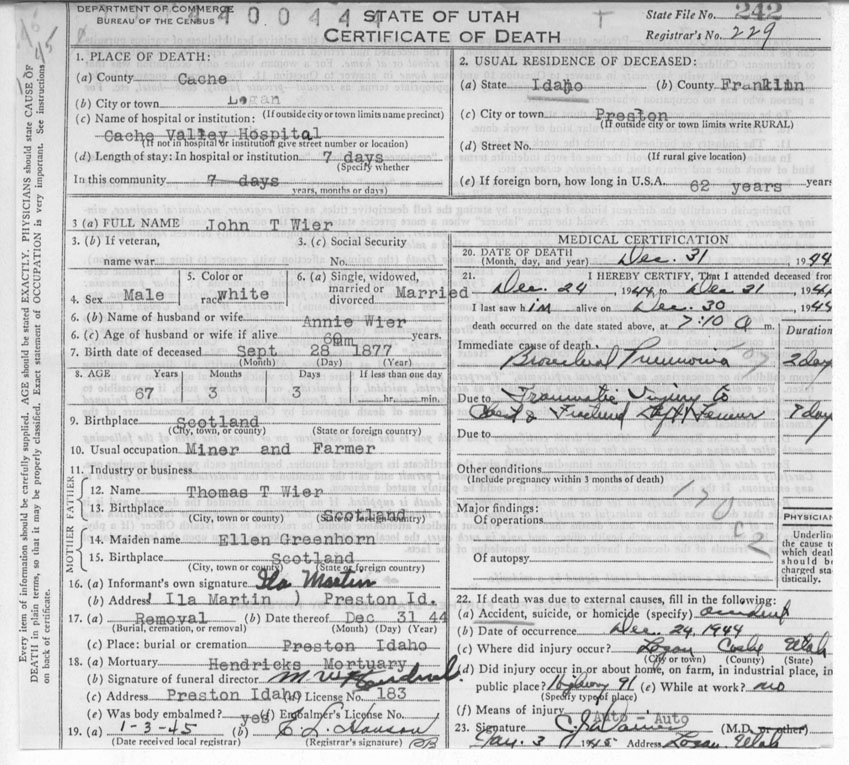 DEPARTMENT OF COMMERCE
BUREAU OF THE CENSUS
STATE OF UTAH
CERTIFICATE OF DEATH
State File No. 242
Registrar's No. 229
Every item of information should be carefully supplied. AGE should be stated EXACTLY. PHYSICIANS should state CAUSE OF
DEATH in plain terms, so that it may be properly classified. Exact statement of OCCUPATION is very important. See instructions
on back of certificate.
1. PLACE OF DEATH:
(a) County Cache
(b) City or town Logan
(If outside city or town limits name precinct)
(c) Name of hospital or institution:
Cache Valley Hospital
(If not in hospital or institution give street number or location)
(d) Length of stay: In hospital or institution 7 days
(Specify whether
In this community 7 days
years, months or days)
2. USUAL RESIDENCE OF DECEASED:
(a) State Idaho (b) County Franklin
(c) City or town Preston
(If outside city or town limits write RURAL)
(d) Street No.
(If rural give location)
(e) If foreign born, how long in U.S.A. 62 years years
3 (a) FULL NAME John T Wier
3. (b) If veteran,
name war
3. (c) Social Security
No.
4. Sex Male
5. Color or
race White
6. (a) Single, widowed,
married or
divorced Married
6. (b) Name of husband or wife Annie Wier
6. (c) Age of husband or wife if alive years.
7. Birth date of deceased Sept 28 1877
(Month) (Day) (Year)
8. AGE Years Months Days If less than one day
67 3 3 hr. min.
9. Birthplace Scotland
(City, town, or county) (State or foreign country)
10. Usual occupation Miner and Farmer
11. Industry or business
FATHER
12. Name Thomas T Wier
13. Birthplace Scotland
(City, town or county) (State or foreign country)
MOTHER
14. Maiden name Ellen Greenhorn
15. Birthplace Scotland
(City, town or county) (State or foreign country)
16. (a) Informant's own signature Ila Martin
(b) Address ( Ila Martin ) Preston Id.
17. (a) Removal (b) Date thereof Dec 31 44
(Burial, cremation, or removal) (Month) (Day) (Year)
(c) Place: burial or cremation Preston Idaho
18. (a) Mortuary Hendricks Mortuary
(b) Signature of funeral director
(c) Address Preston Idaho License No. 183
(e) Was body embalmed? yes (d) Embalmer's License No.
19. (a) 1-3-45 (b)
(Date received local registrar) (Registrar's signature)
MEDICAL CERTIFICATION
20. DATE OF DEATH Dec. 31 1944
(Month, day, and year)
21. I HEREBY CERTIFY, That I attended deceased from
Dec. 24, 1944, to Dec 31, 1944
I last saw him alive on Dec. 30 1944
death occurred on the date stated above, at 7:10 a m.
Duration
Immediate cause of death.
Bronchial Pneumonia 2 day
Due to Traumatic Injury to
Chest & Femur 7 day
Due to
Other conditions
(Include pregnancy within 3 months of death)
Major findings:
Of operations
Of autopsy
PHYSICIAN
Underline
the cause to
which death
should be
charged sta-
tistically.
22. If death was due to external causes, fill in the following:
(a) Accident, suicide, or homicide (specify) accident
(b) Date of occurrence Dec. 24, 1944
(c) Where did injury occur? Logan Cache Utah
(City or town) (County) (State)
(d) Did injury occur in or about home, on farm, in industrial place, in
public place? Highway 91 (e) While at work? no
(Specify type of place)
(f) Means of injury Auto - Auto
23. Signature (M.D. or other)
Jan. 3 1945 Address Logan, Utah